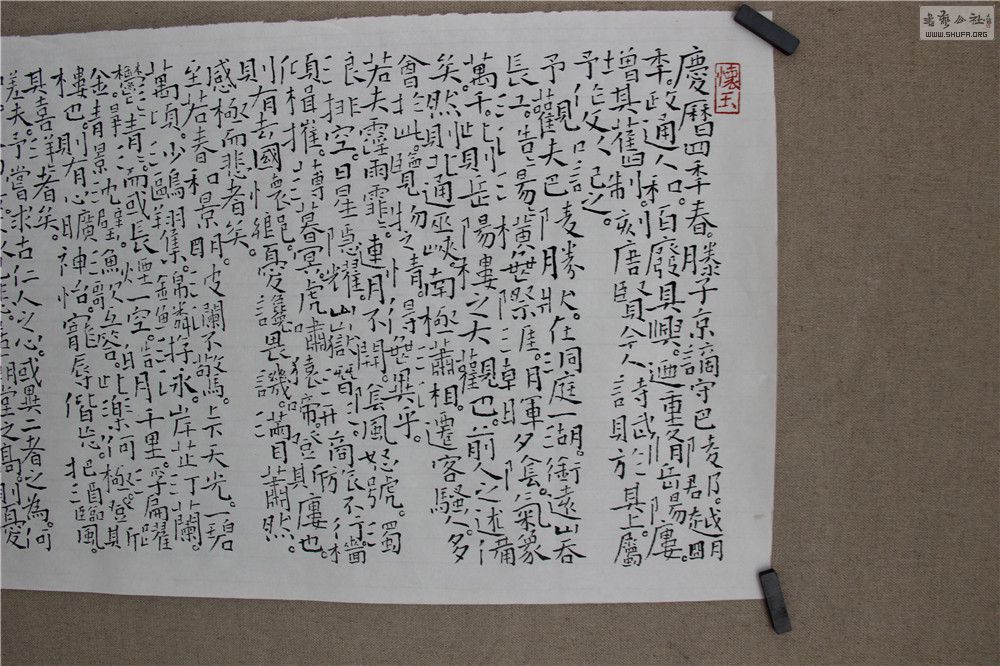 懷玉
慶曆四年春。滕子京謫守巴陵郡。越明
年。政通人和。百廢具興。迺重脩岳陽樓。
增其舊制。刻唐賢今人詩賦於其上。屬
予作文以記之。
予觀夫巴陵勝狀。在洞庭一湖。銜遠山吞
長江。浩浩湯湯橫無際涯。朝暉夕陰。氣象
萬千。此則岳陽樓之大觀也。前人之述備
矣。然則北通巫峽。南極瀟湘。遷客騷人。多
會於此。覽物之情。得無異乎。
若夫霪雨霏霏。連月不開。陰風怒號。濁
浪排空。日星隱耀。山嶽潛形。商旅不行。檣
傾楫摧。薄暮冥冥。虎嘯猿啼。登其樓也。
則有去國懷鄉。憂讒畏譏。滿目蕭然。
感極而悲者矣。
至若春和景明。波瀾不驚。上下天光。一碧
萬頃。沙鷗翔集。錦鱗游泳。岸芷汀蘭。
鬱鬱青青。而或長煙一空。皓月千里。浮光躍
金。靜影沉璧。漁歌互答。此樂何極。登其
樓也。則有心曠神怡。寵辱偕忘。把酒臨風。
其喜洋洋者矣。
嗟夫。予嘗求古仁人之心。或異二者之為。何
WWW.SHUFA.ORG